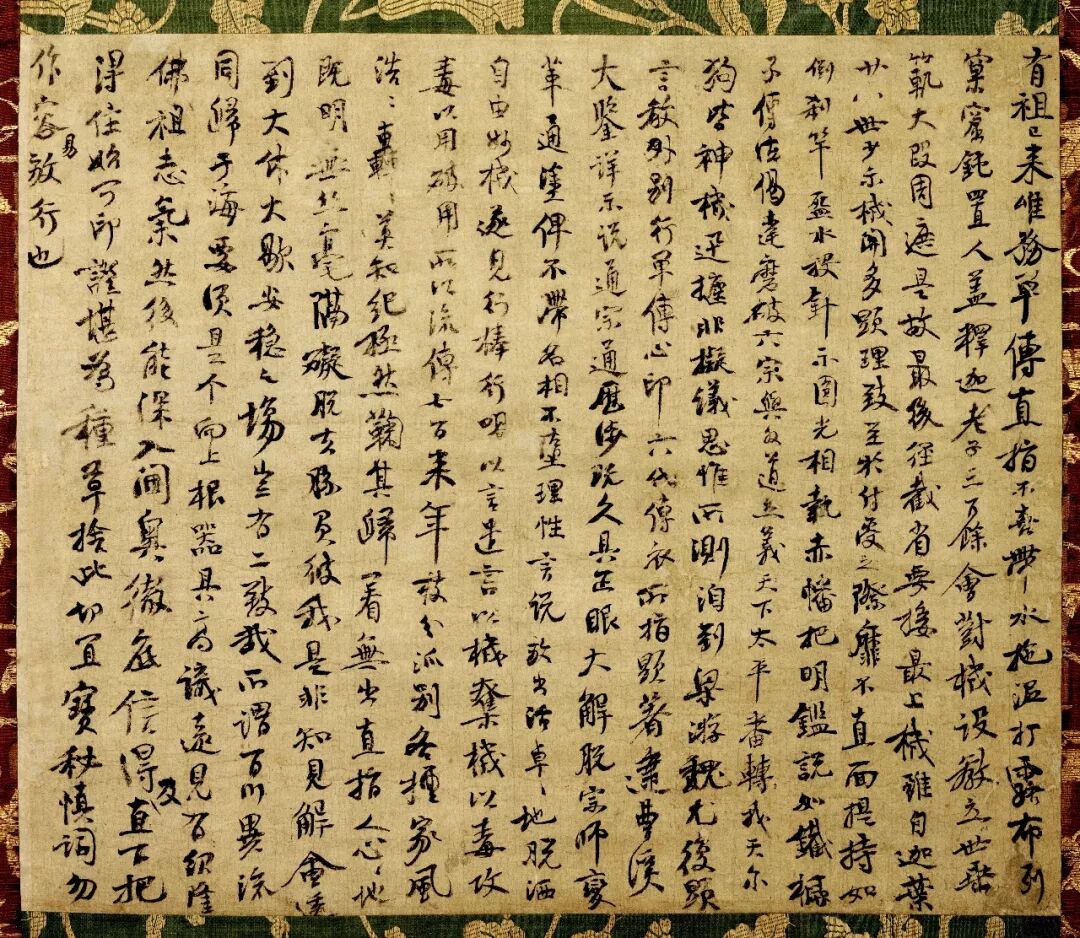 有祖已来唯務單傳直指不喜帶水拖泥打露布列
窠窟鈍置人蓋釋迦老子三百餘會對機設教立世垂
範大段周遮是故最後徑截省要接最上機雖自迦葉
廿八世少示機關多顯理致至於付受之際靡不直面提持如
倒刹竿盋水投針示圓光相執赤幡把明鑑說如鐵橛
子傳法偈達磨破六宗與外道立義天下太平番轉我天尔
狗皆神機迅捷非擬議思惟所測洎到梁游魏尤復顯
言教外別行單傳心印六代傳衣所指顯著逮曹溪
大鑒詳示說通宗通歷涉既久具正眼大解脱宗師變
革通塗俾不滯名相不墮理性言說放出活卓〻地脱洒
自由妙機遂見行棒行喝以言遣言以機奪機以毒攻
毒以用破用所以流傳七百来年枝分派別各擅家風
浩〻轟〻莫知紀極然鞠其歸著無出直指人心〻地
既明無丝毫隔礙脱去勝負彼我是非知見解會透
到大休大歇安穩之場豈有二致哉所謂百川異流
同歸于海要須是个向上根器具高識遠見有紹隆
佛祖志氣然後能深入閫奧徹底信得及直下把
得住始可印證堪爲種草捨此切宜寳秘慎詞勿
作容易放行也